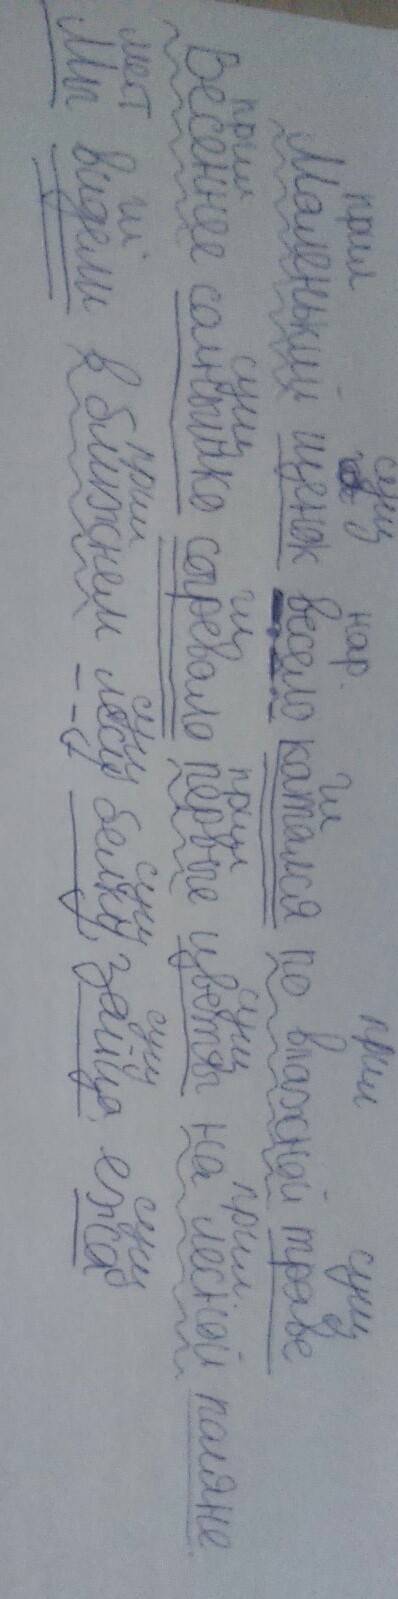 прил сущ нар. гл прил сущ
Маленький щенок весело катался по влажной траве
прил сущ гл прил сущ прил.
Весеннее солнышко согревало первые цветы на лесной паляне.
мест гл. прил сущ сущ сущ сущ
Мы видели в ближнем лесу белку, зайца, ежа